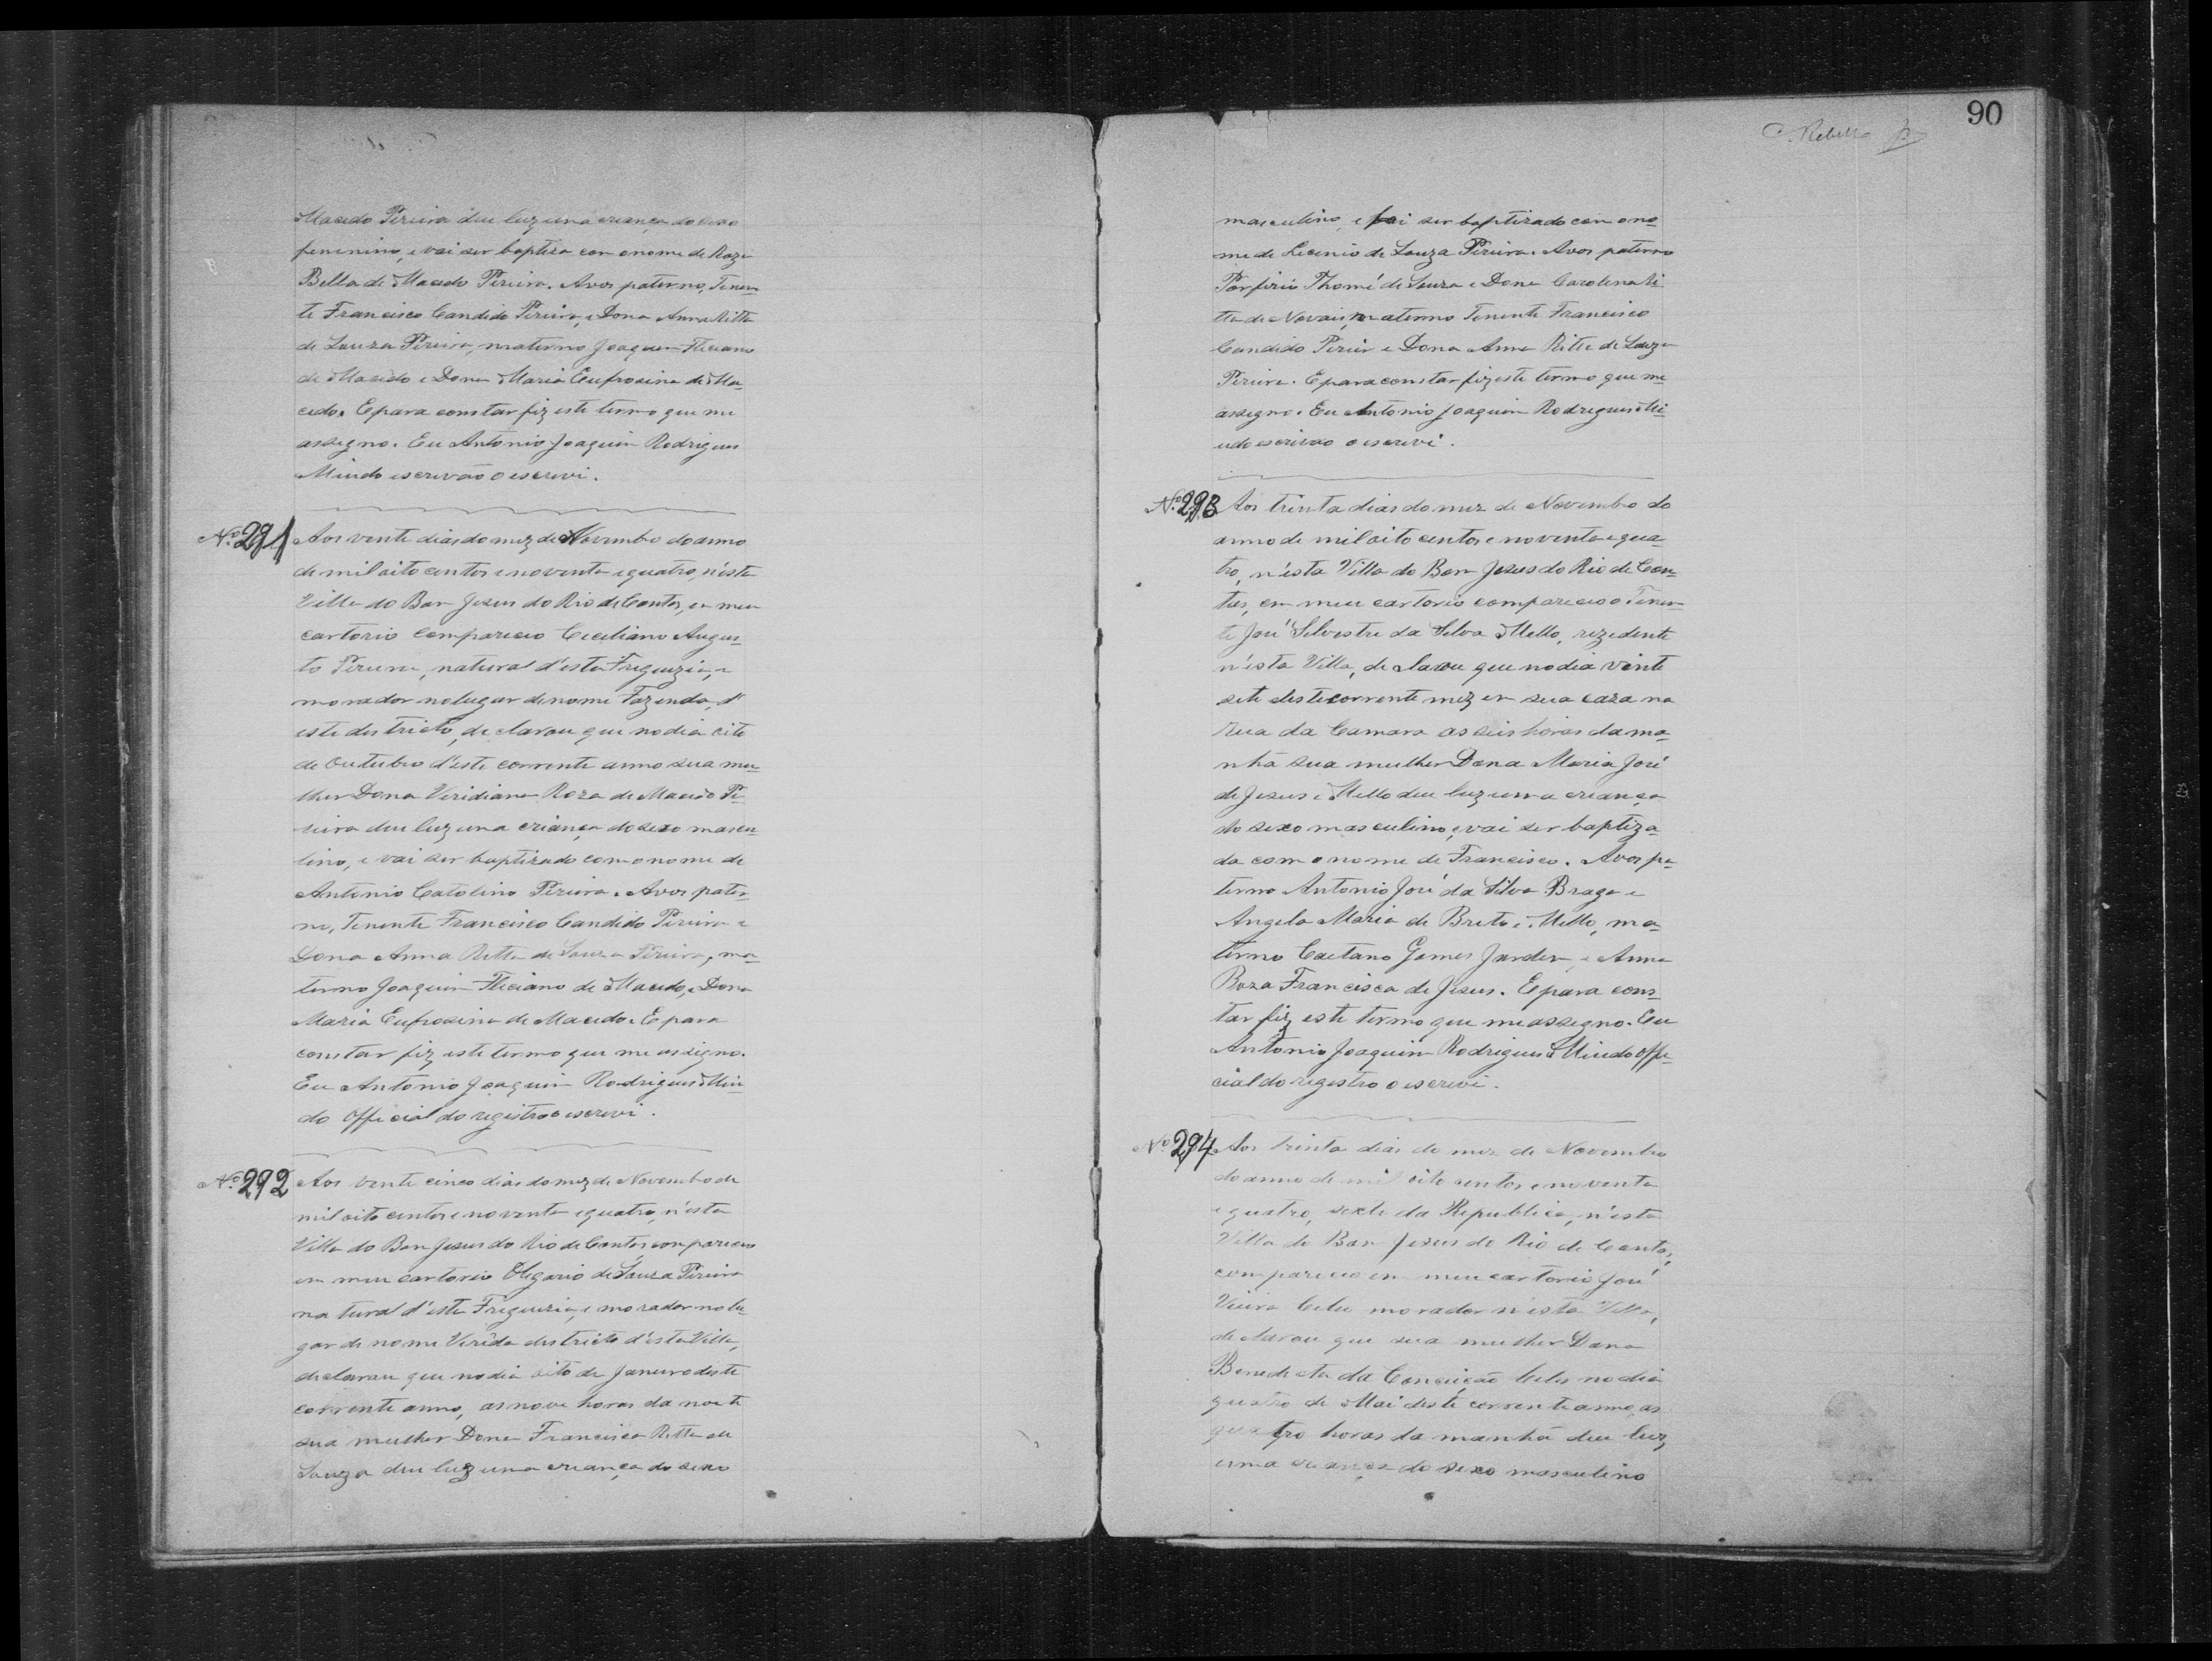 Macedo Pereira deu luz uma criança do sexo
femenino, e vai ser baptisa com o nome de Roza
Bella de Macedo Pereira. Avos paterno, Tenen-
te Francisco Candido Pereira, e Dona Anna Ritta
de Souza Pereira, materno Joaquim Feliciano
de Macedo e Dona Maria Eufrosina de Ma-
cedo. E para constar fiz este termo que me
assigno. Eu Antonio Joaquim Rodrigues
Miudo escrivão o escrevi.
Nº 291 Aos vente dias do mez de Novembro do anno
de mil oito centos e noventa e quatro, n'esta
Villa do Bom Jesus do Rio de Contas, em meu
cartorio compareceo Ceciliano Augus-
to Pereira, natural d'esta Freguezia, e
morador no lugar de nome Fazenda, d'
este destricto, de clarou que no dia oito
de Outubro d'este corrente anno sua mu-
lher Dona Viridiana Roza de Macedo Pe-
reira deu luz uma criança do sexo mascu-
lino, e vai ser baptizado com o nome de
Antonio Catolino Pereira. Avos pater-
no, Tenente Francisco Candido Pereira e
Dona Anna Ritta de Souza Pereira, ma-
terno Joaquim Feliciano de Macedo, e Dona
Maria Eufrosina de Macedo. E para
constar fiz este termo que me assigno.
Eu Antonio Joaquim Rodrigues Miu-
do Official do registro o escrevi.
Nº 292 Aos vente cinco dias do mez de Novembro de
mil oito centos e noventa e quatro, n'esta
Villa do Bom Jesus do Rio de Contas compareceo
em meu cartorio Olegario de Souza Pereira
natural d'esta Freguezia, e morador no lu-
gar de nome Veréda destricto d'esta Villa,
declarou que no dia oito de Janeiro deste
corrente anno, as nove horas da noite
sua mulher Dona Francisca Ritta de
Souza deu luz uma criança do sexo
90
Rebello
masculino, e vai ser baptizado com o no-
me de Licinio de Souza Pereira. Avos paterno
Porfirio Thomé de Souza e Dona Carolina Ri-
tta de Novais, materno Tenente Francisco
Candido Pereir e Dona Anna Ritta de Souza
Pereira. E para constar fiz este termo que me
assigno. Eu Antonio Joaquim Rodrigues Mi-
udo escrivão o escrevi.
Nº 293 Aos trinta dias do mez de Novembro do
anno de mil oito centos e noventa e qua-
tro, n'esta Villa do Bom Jesus do Rio de Con-
tas, em meu cartorio compareceo o Tenen-
te José Silvestre da Silva Mello, rezedente
n'esta Villa, de clarou que no dia vinte
sete deste corrente mez em sua caza na
Rua da Camara as seis horas da ma-
nhã sua mulher Dona Maria José
de Jesus e Mello deu luz uma criança
do sexo masculino, e vai ser baptiza-
da com o nome de Francisco. Avos pa-
terno Antonio José da Silva Braga e
Angela Maria de Brito e Mello, ma-
terno Caetano Gomes Jardim, e Anna
Roza Francisca de Jesus. E para cons-
tar fiz este termo que me assigno. Eu
Antonio Joaquim Rodrigues Miudo offi-
cial do registro o escrevi.
Nº 294 Aos trinta dias do mez de Novembro
do anno de mil oito centos e noventa
e quatro, sexto da Republica, n'esta
Villa do Bom Jesus do Rio de Contas,
compareceo em meu cartorio José
Vieira morador n'esta Villa,
declarou que sua mulher Dona
Benedicta da Conceição no dia
quatro de Mai deste corrente anno, as
quatro horas da manhã deu luz
uma criança do sexo masculino